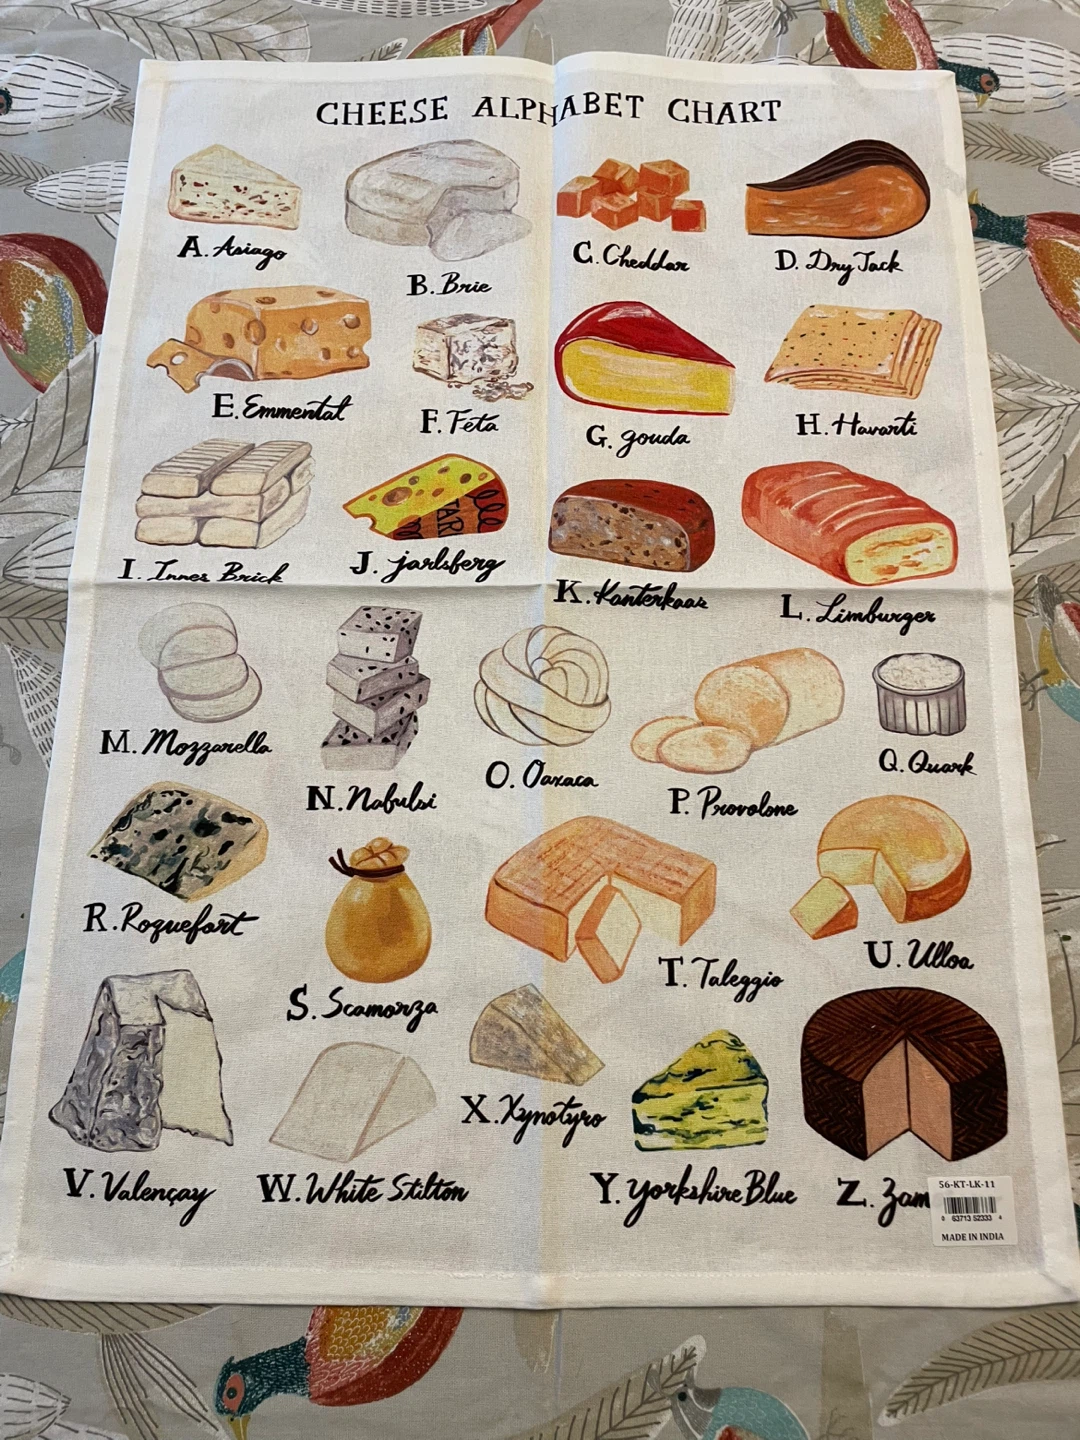 CHEESE ALPHABET CHART
A. Asiago
B. Brie
C. Cheddar
D. Dry Jack
E. Emmental
F. Feta
G. gouda
H. Havarti
I. Innes Brick
J. jarlsberg
K. Kanterkaas
L. Limburger
M. Mozzarella
N. Nabulsi
O. Oaxaca
P. Provolone
Q. Quark
R. Roquefort
S. Scamorza
T. Taleggio
U. Ulloa
V. Valençay
W. White Stilton
X. Xynotyro
Y. Yorkshire Blue
Z. Zam
56-KT-LK-11
0 63713 52333 4
MADE IN INDIA